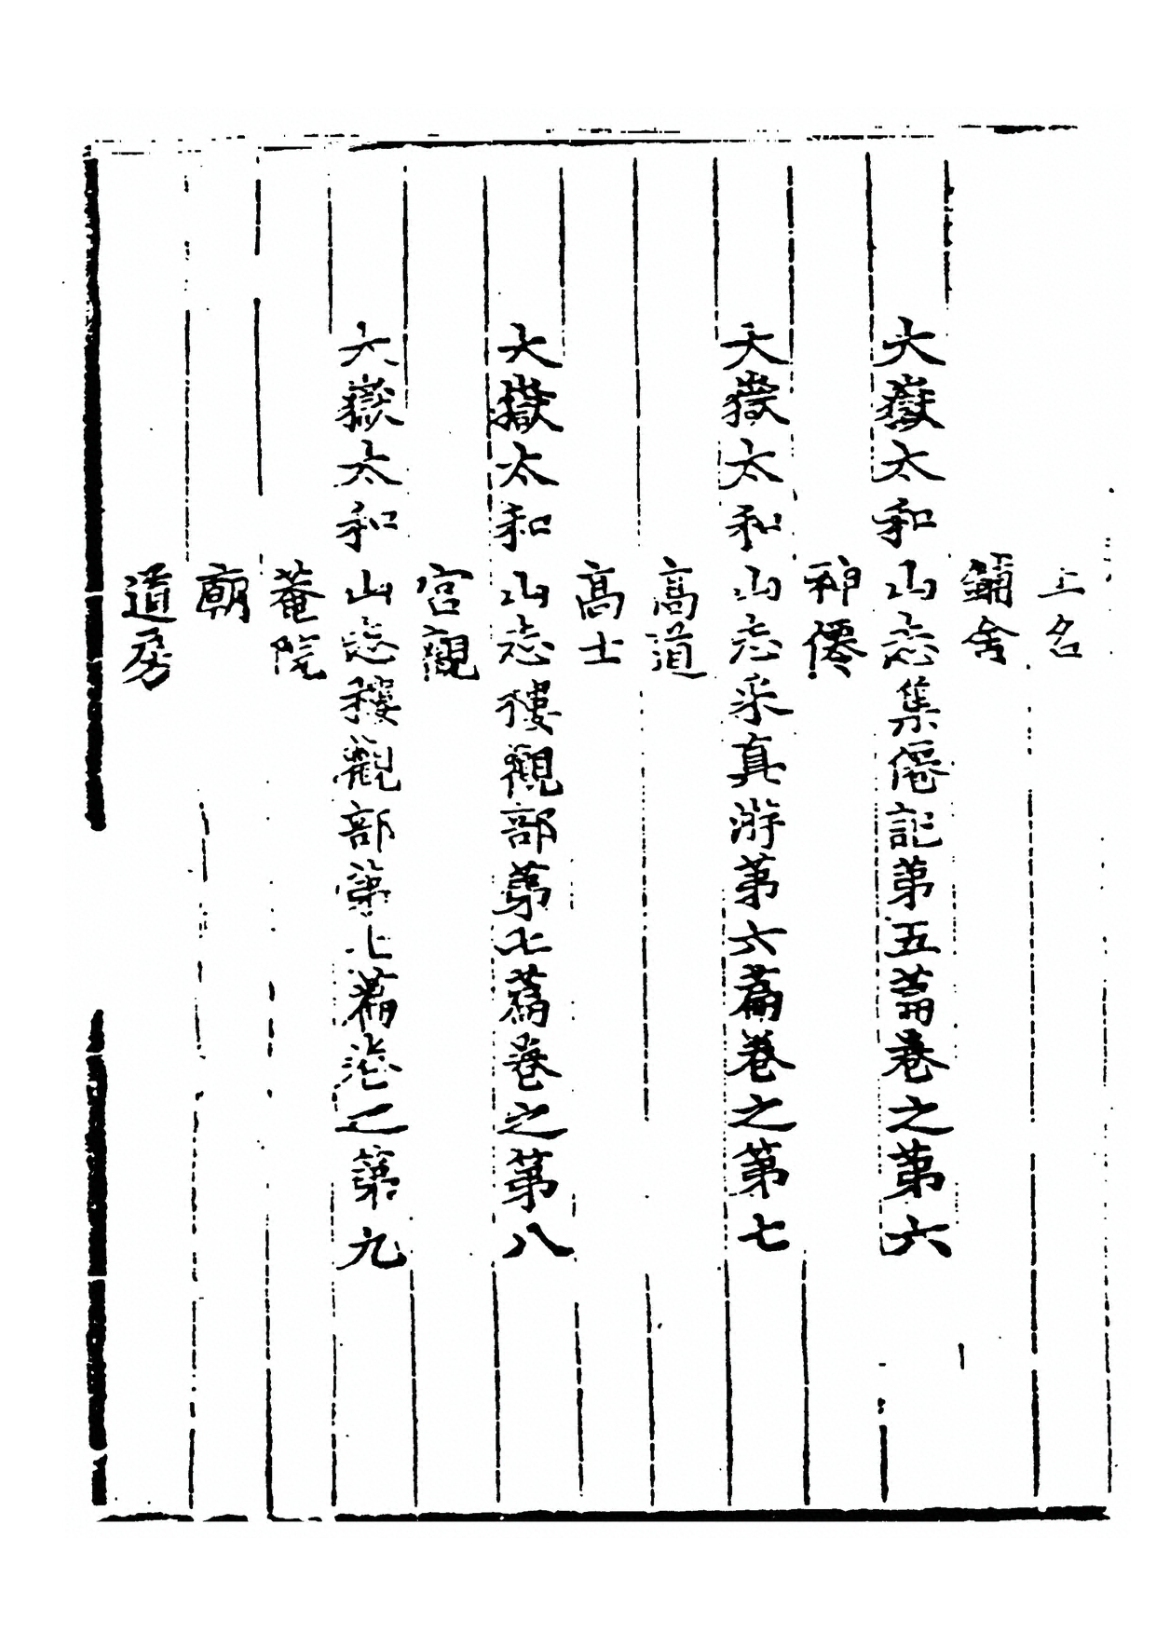 土名
鋪舍
大嶽太和山志集僊記第五篇卷之第六
神僊
大嶽太和山志采真游第六篇卷之第七
高道
高士
大嶽太和山志樓觀部第七篇卷之第八
宮觀
大嶽太和山志樓觀部第七篇卷之第九
菴院
廟
道房